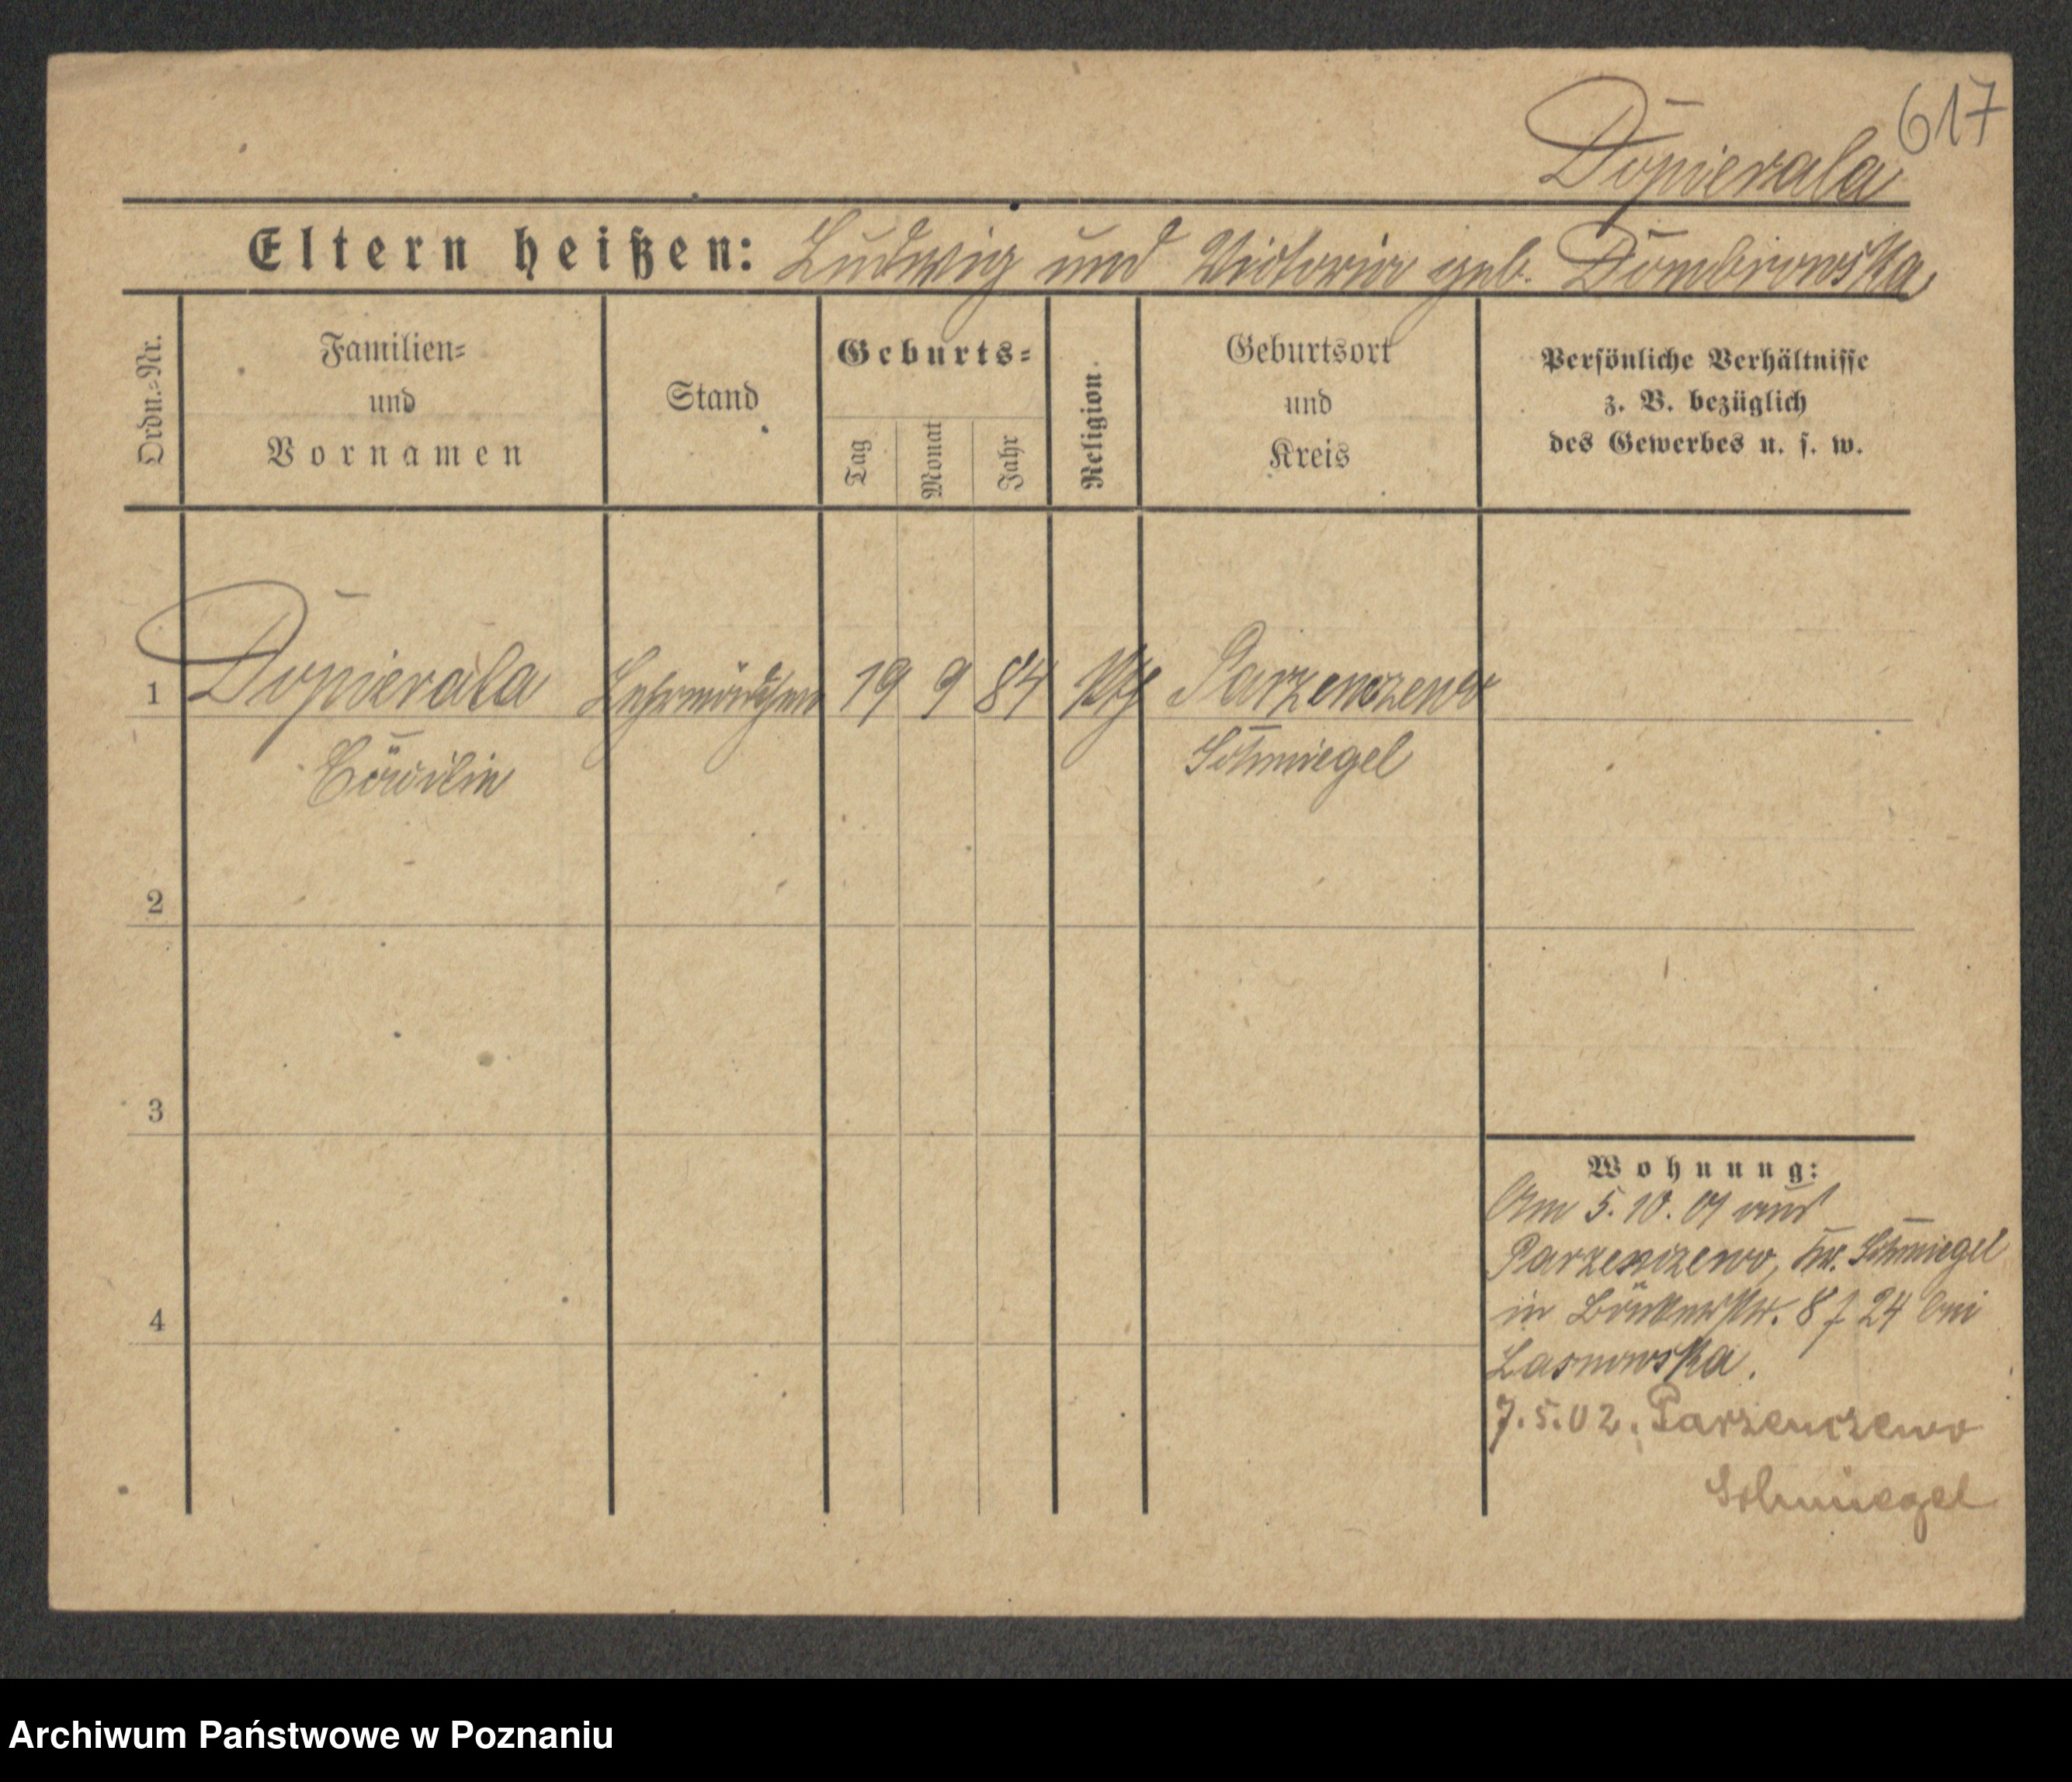 617
Dopierala
Eltern heißen: Ludwig und Victoria geb. Dombrowska
Ordn.=Nr.
Familien=
und
Vornamen
Stand
Geburts=
Tag
Monat
Jahr
Religion.
Geburtsort
und
Kreis
Persönliche Verhältnisse
z. B. bezüglich
des Gewerbes u. s. w.
1 Dopierala Lehrmädchen 19 9 84 kth Parzenczewo
Cäcilie Schmiegel
2
3
4
Wohnung:
Am 5. 10. 01 aus
Parzenczewo, Kr. Schmiegel
in Bäckerstr. 8 f 24 bei
Lasnowska.
7. 5. 02. Parzenczewo
Schmiegel
Archiwum Państwowe w Poznaniu